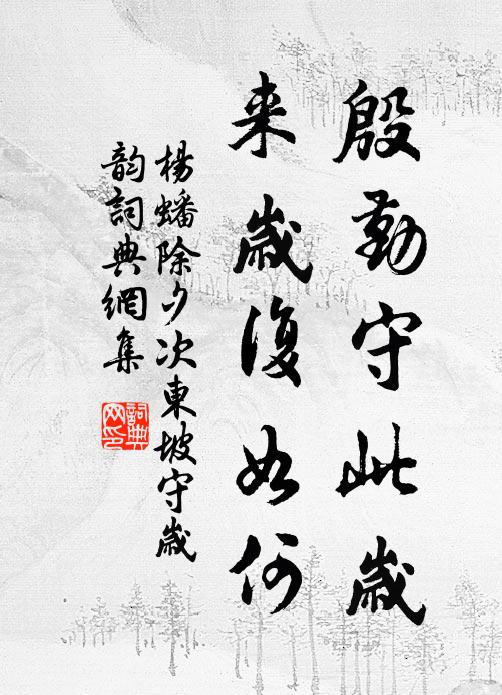 殷勤守此歲
来歲復如何
楊蟠除夕次東坡守歲
韵詞典網集
詞典
网印